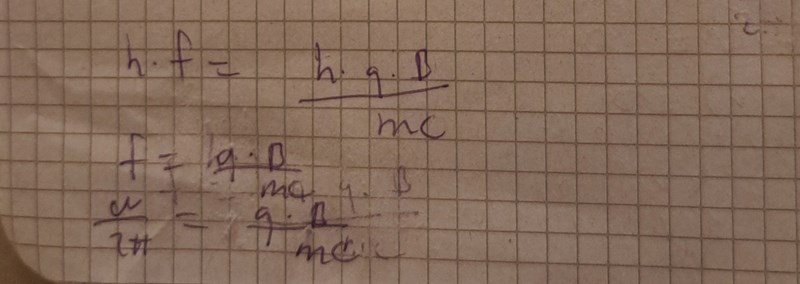 h · f = h · q · B / mc
f = q · B / mc
q · B
/ 2π = q · B / mc